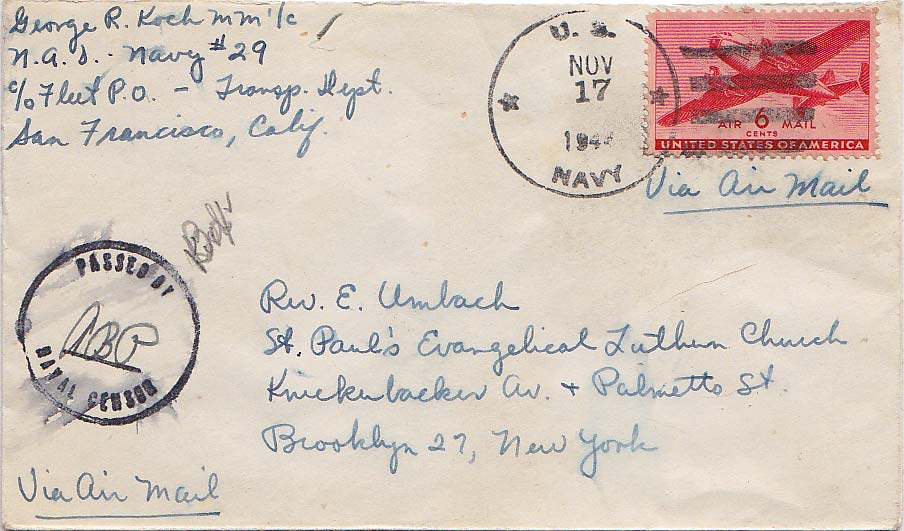 George R. Koch MM 1/c
N.A.S. - Navy #29
c/o Fleet P.O. - Transp. Dept.
San Francisco, Calif.
U. S.
NOV
17
NAVY
AIR 6 MAIL
CENTS
UNITED STATES OF AMERICA
Via Air Mail
PASSED BY
NAVAL CENSOR
Rev. E. Umbach
St. Paul's Evangelical Luthern Church
Knickerbacker Av. + Palmetto St.
Brooklyn 27, New York
Via Air Mail